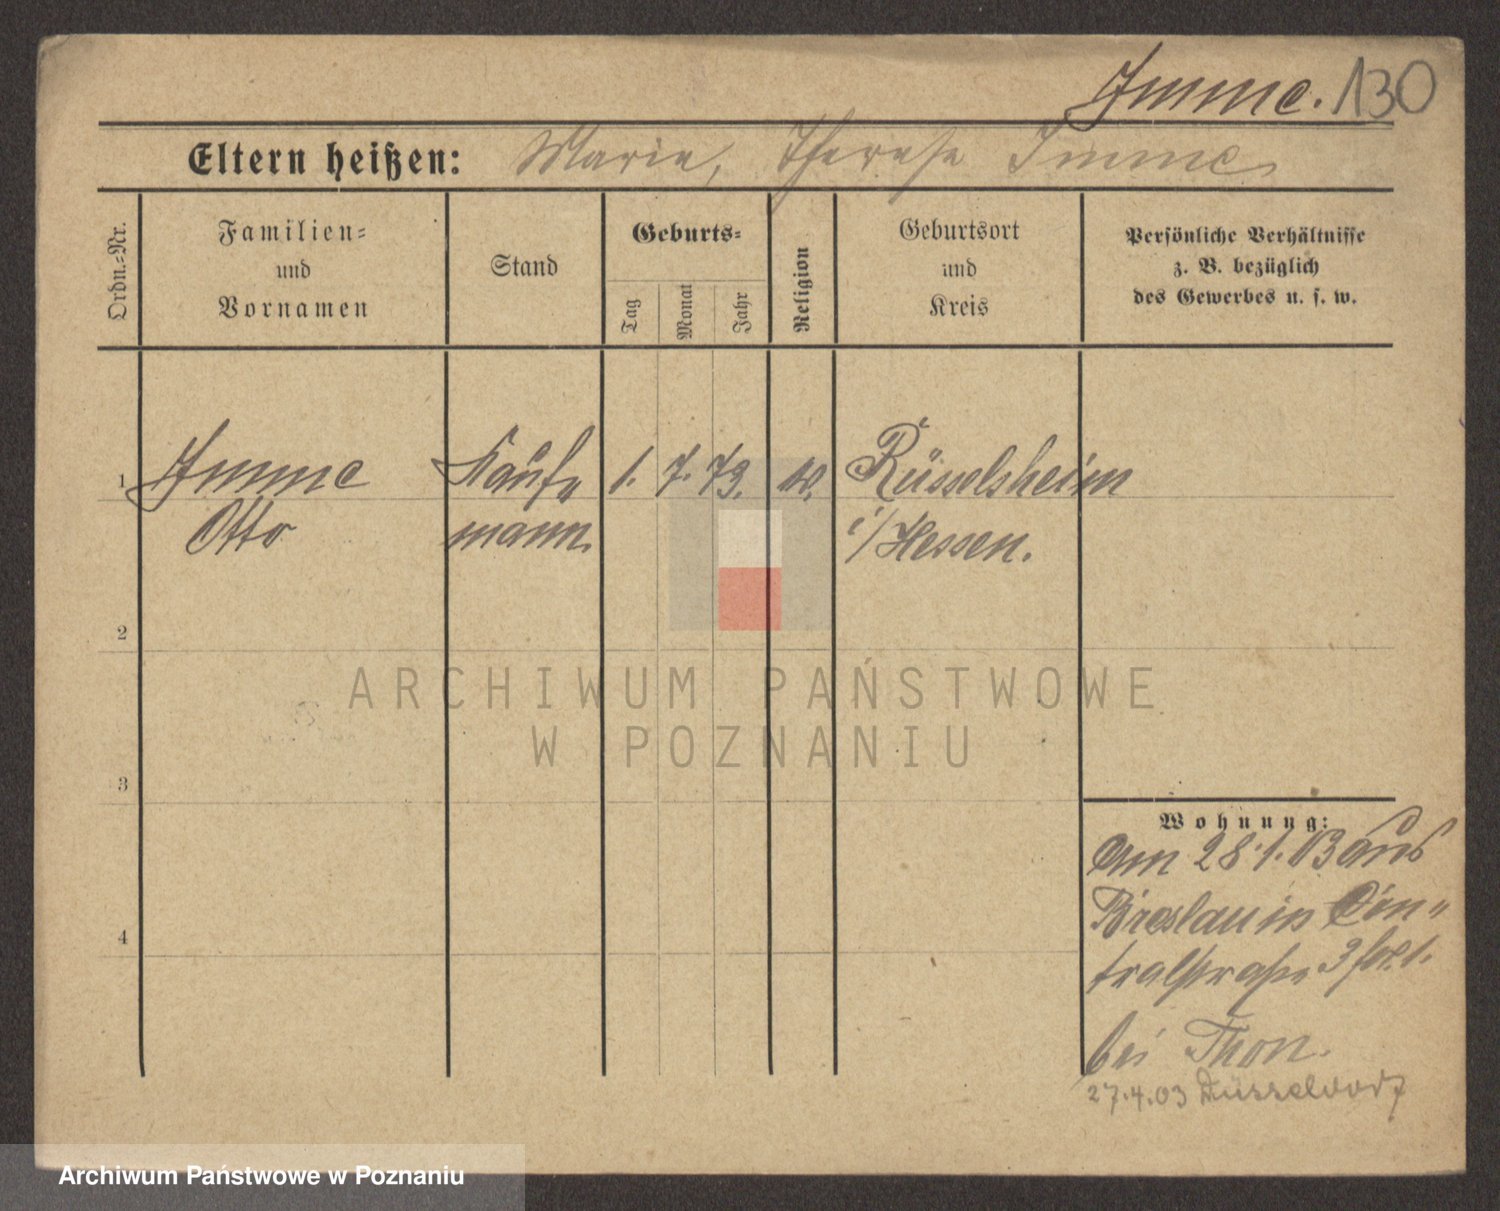 Imme. 130
Eltern heißen: Marie, Therese Imme
Ordn.-Nr.
Familien-
und
Vornamen
Stand
Geburts-
Tag
Monat
Jahr
Religion
Geburtsort
und
Kreis
Persönliche Verhältnisse
z. B. bezüglich
des Gewerbes u. s. w.
1 Imme Kauf- 1. 7. 73. Rüsselsheim
Otto mann. i/Hessen.
2
3
4
Wohnung:
Am 28.1.03 aus
Breslau in Cen-
tralstraße 3
bei Thon.
27.4.03 Düsseldorf
ARCHIWUM PAŃSTWOWE
W POZNANIU
Archiwum Państwowe w Poznaniu